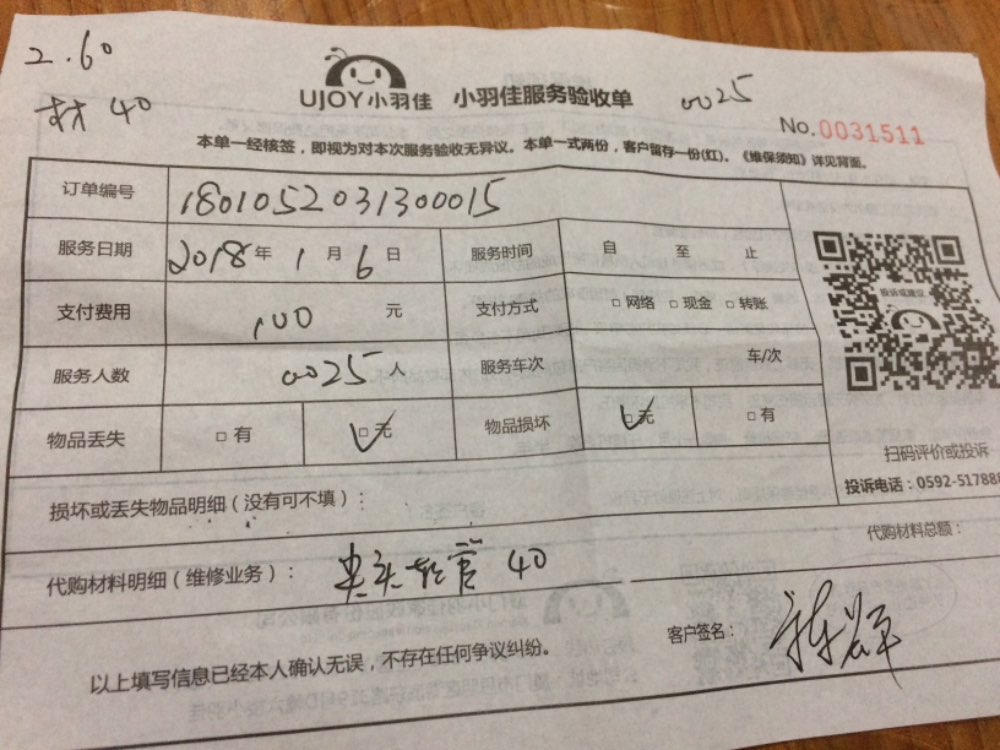 2.60
材 40
UJOY小羽佳 小羽佳服务验收单
0025
No.0031511
本单一经核签，即视为对本次服务验收无异议。本单一式两份，客户留存一份(红)。《维保须知》详见背面。
订单编号 1801052031300015
服务日期 2018年1月6日 服务时间 自 至 止
支付费用 100 元 支付方式 □网络 □现金 □转账
投诉或建议
服务人数 0025人 服务车次 车/次
物品丢失 □有 □无 物品损坏 □无 □有
扫码评价或投诉
投诉电话：0592-517888
损坏或丢失物品明细（没有可不填）：
代购材料总额：
代购材料明细（维修业务）： 头 管 40
客户签名：
以上填写信息已经本人确认无误，不存在任何争议纠纷。